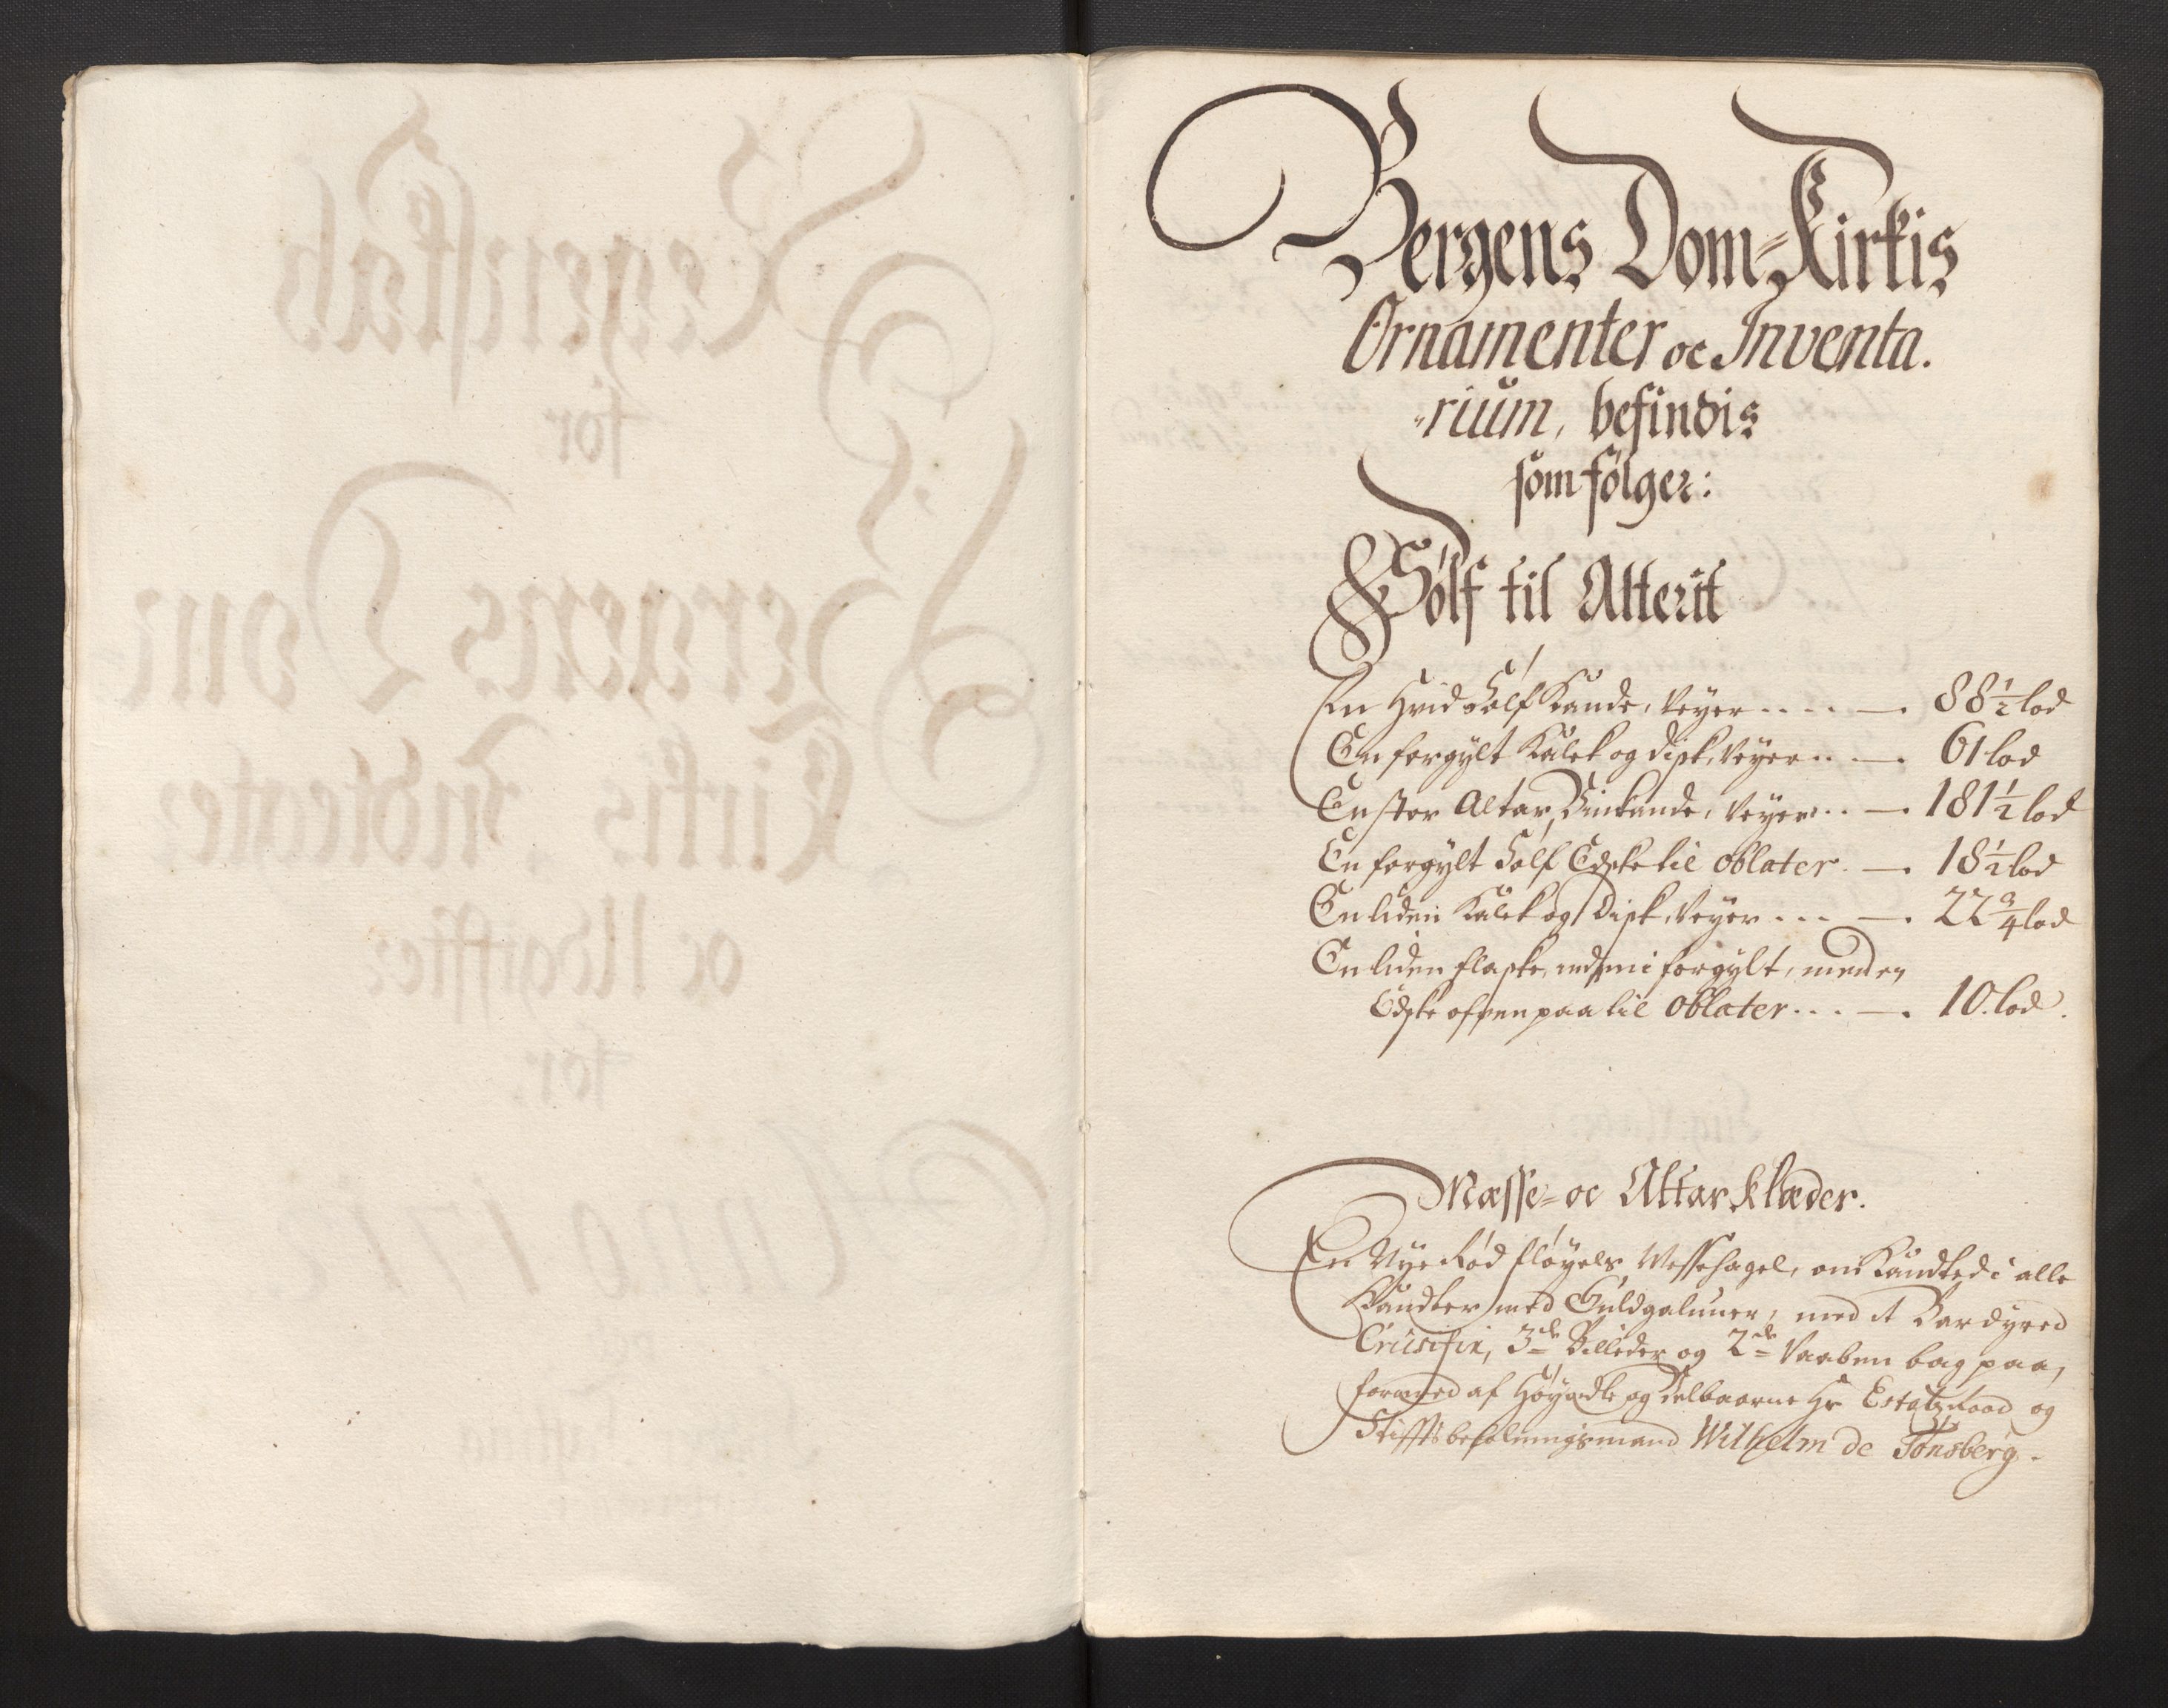 Bergens Dom-Kirkis
Ornamenter oc Inventa.
-rium, befindis
som følger:
Sølf til Alterit
En Hvid Sølf Kande, Veyer .... — . 88½ lod
En forgylt Kalck og Disk, Veyer .. — . 61 lod
En stor Altar Vinkande, Veyer .. — . 181½ lod
En forgylt Sølf Edske til oblater . — . 18½ lod
En liden Kalck og Disk, Veyer ... — . 22¾ lod
En liden flaske, indeni forgylt, med en
Edske ofven paa til oblater ... — . 10. lod.
Mæsse- oc Altar klæder.
En Nye Rød fløyels Messehagel, om Kandted i alle
Kandter med Guldgaluner, med it Bardyred
Crucifix, 3de Billeder og 2de Vaaben bag paa,
foræred af Høyædle og Velbaarne Hr Estatzraad og
Stiftsbefalningsmand Wilhelm de Tønsberg.